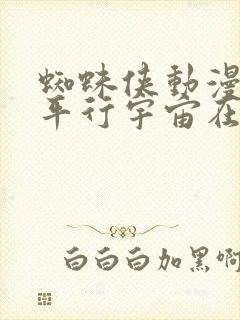 蜘蛛侠動漫
平行宇宙在
白白白加黑啊